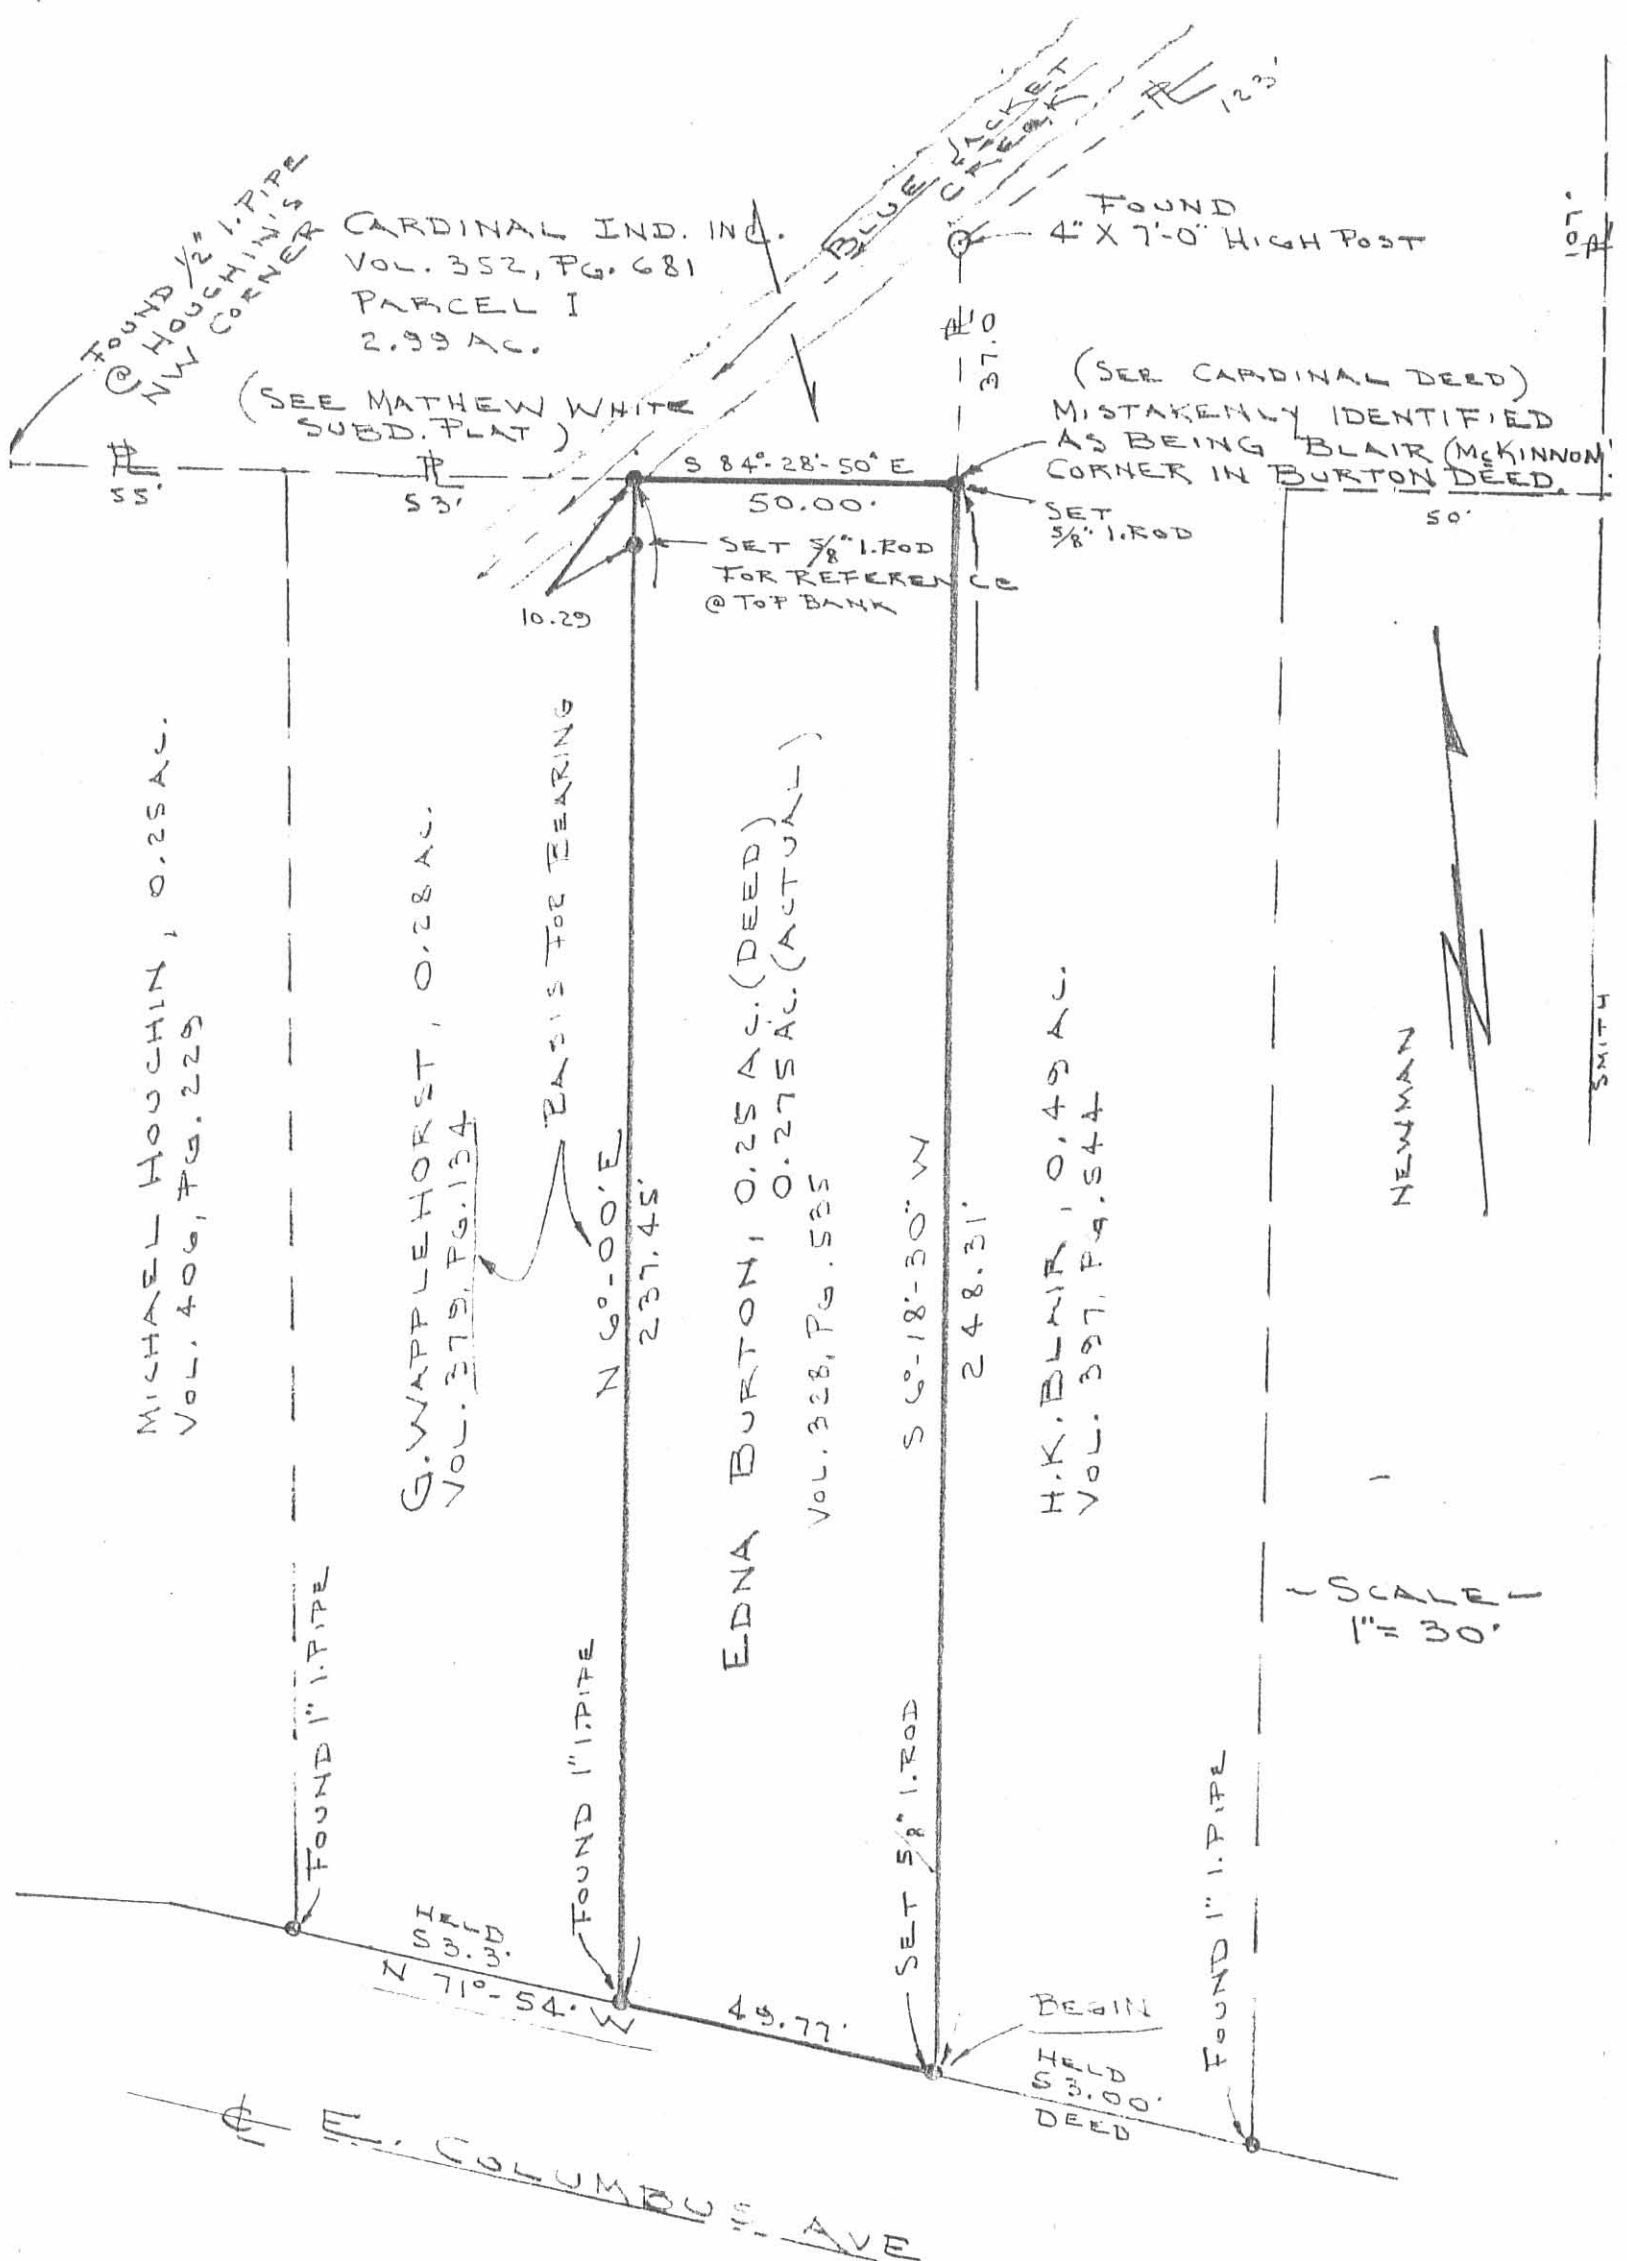 FOUND 1/2" I. PIPE
@ HOUCHIN'S
NW CORNER
CARDINAL IND. INC.
VOL. 352, PG. 681
PARCEL I
2.99 AC.
(SEE MATHEW WHITE
SUBD. PLAT)
BLUE JACKET
CREEK
PL
123'
FOUND
4" X 7'-0" HIGH POST
107'
PL
PL
37.0
(SEE CARDINAL DEED)
MISTAKENLY IDENTIFIED
AS BEING BLAIR (McKINNON)
CORNER IN BURTON DEED.
PL
55'
PL
53'
S 84°-28'-50" E
50.00'
SET
5/8" I. ROD
50'
SET 5/8" I. ROD
FOR REFERENCE
@ TOP BANK
10.29
MICHAEL HOUCHIN, 0.25 AC.
VOL. 406, PG. 229
G. WAPPLEHORST, 0.28 AC.
VOL. 379, PG. 134
BASIS FOR BEARING
N 6°-00' E
237.45'
EDNA BURTON, 0.25 AC. (DEED)
0.275 AC. (ACTUAL)
VOL. 328, PG. 535
S 6°-18'-30" W
248.31'
H.K. BLAIR, 0.49 AC.
VOL. 397, PG. 544
NEWMAN
N
SMITH
- SCALE -
1" = 30'
FOUND 1" I. PIPE
FOUND 1" I. PIPE
SET 5/8" I. ROD
FOUND 1" I. PIPE
HELD
53.3'
N 71°-54' W
49.77'
BEGIN
HELD
53.00'
DEED
CL E. COLUMBUS AVE